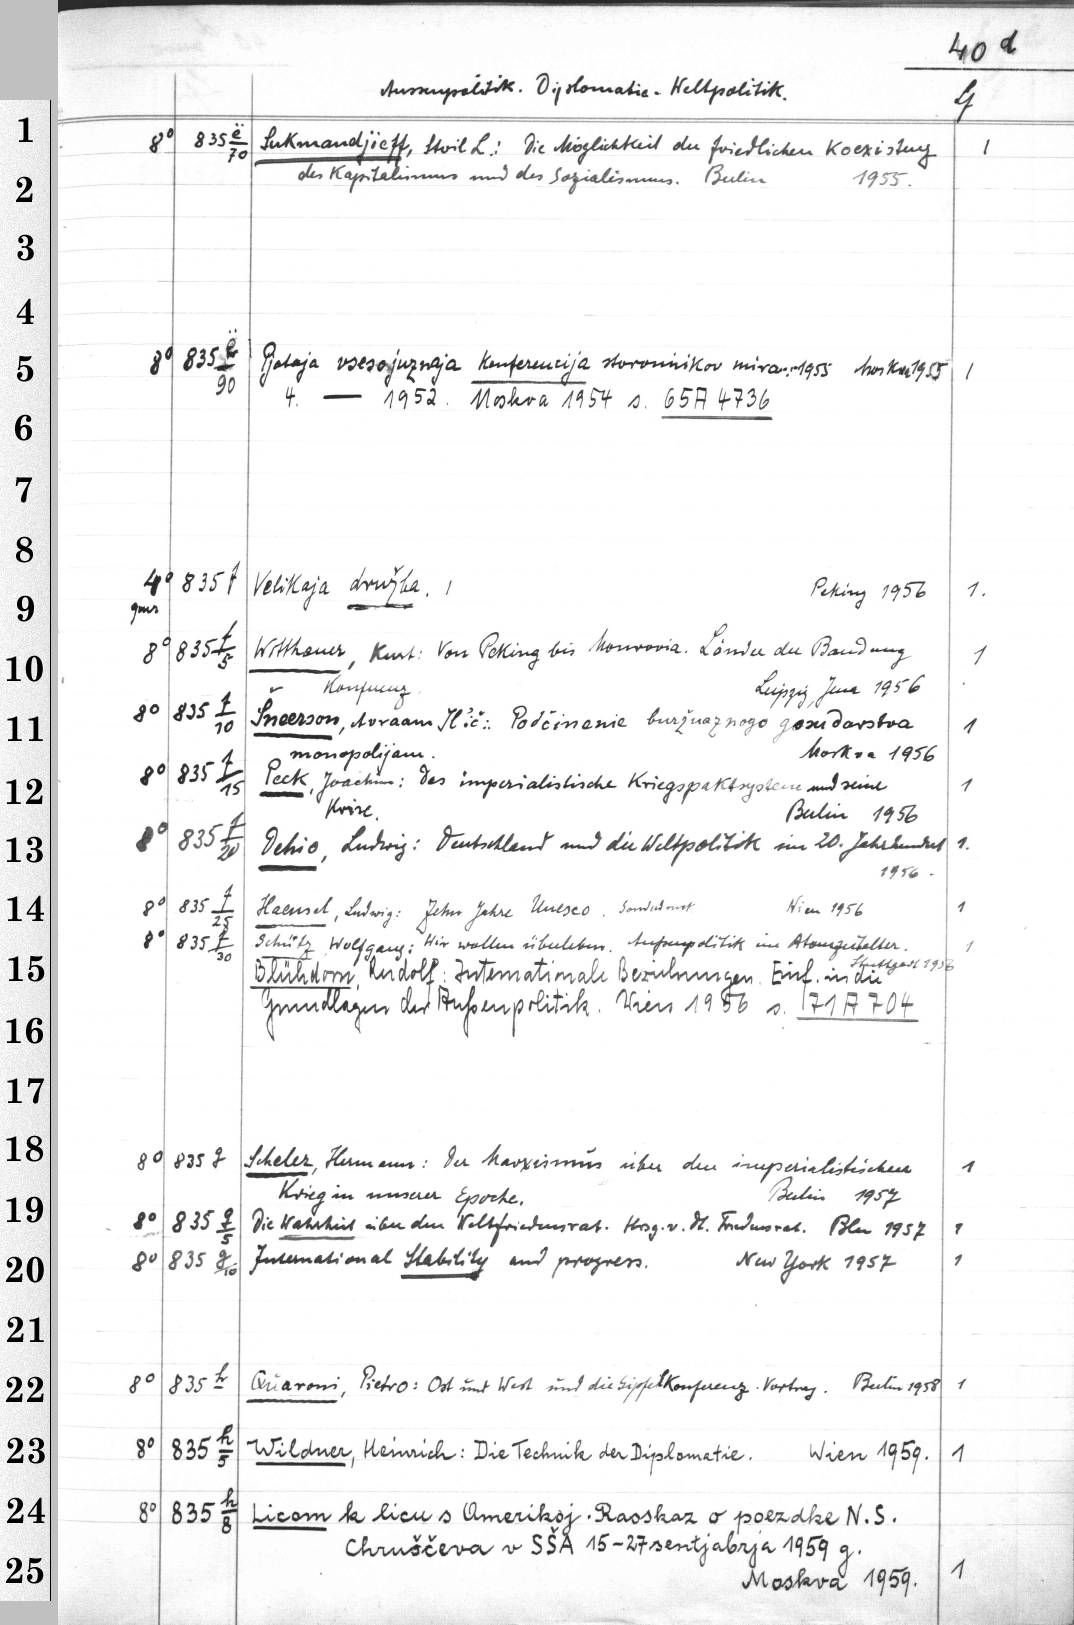 40 d
Aussenpolitik. Diplomatie - Weltpolitik.
G
1
8° 835 ë/70 Sukmandjieff, Stoil L.: Die Möglichkeit der friedlichen Koexistenz 1
2
des Kapitalismus und des Sozialismus. Berlin 1955.
3
4
5
8° 835 ë/90 Pjataja vsesojuznaja Konferencija storonnikov mira. 1955 Moskva 1955 1
4. — 1952. Moskva 1954 s. 65A4736
6
7
8
4° 835 f Velikaja družba. 1 Peking 1956 1.
9
8° 835 f/5 Witthauer, Kurt: Von Peking bis Monrovia. Länder der Bandung 1
10
Konferenz. Leipzig, Jena 1956
11
8° 835 f/10 Šneerson, Avraam Il'ič: Podčinenie buržuaznogo gosudarstva 1
monopolijam. Moskva 1956
12
8° 835 f/15 Peck, Joachim: Das imperialistische Kriegspaktsystem und seine 1
Krise. Berlin 1956
13
8° 835 f/20 Dehio, Ludwig: Deutschland und die Weltpolitik im 20. Jahrhundert 1.
1956.
14
8° 835 f/25 Haensel, Ludwig: Zehn Jahre Unesco. Wien 1956 1
15
8° 835 f/30 Schütz, Wolfgang: Wir wollen überleben. Außenpolitik im Atomzeitalter. 1
Stuttgart 1956
Blühdorn, Rudolf: Internationale Beziehungen. Einf. in die
Grundlagen der Außenpolitik. Wien 1956 s. 71A704
16
17
18
8° 835 g Scheler, Hermann: Der Marxismus über den imperialistischen 1
Krieg in unserer Epoche. Berlin 1957
19
8° 835 g/5 Die Wahrheit über den Weltfriedensrat. Hrsg. v. Dt. Friedensrat. Bln 1957 1
20
8° 835 g/10 International Stability and progress. New York 1957 1
21
22
8° 835 h Quaroni, Pietro: Ost und West und die Gipfelkonferenz. Vortrag. Berlin 1958 1
23
8° 835 h/5 Wildner, Heinrich: Die Technik der Diplomatie. Wien 1959. 1
24
8° 835 h/8 Licom k licu s Amerikoj. Rasskaz o poezdke N.S.
Chruščeva v SŠA 15-27 sentjabrja 1959 g.
25
Moskva 1959. 1